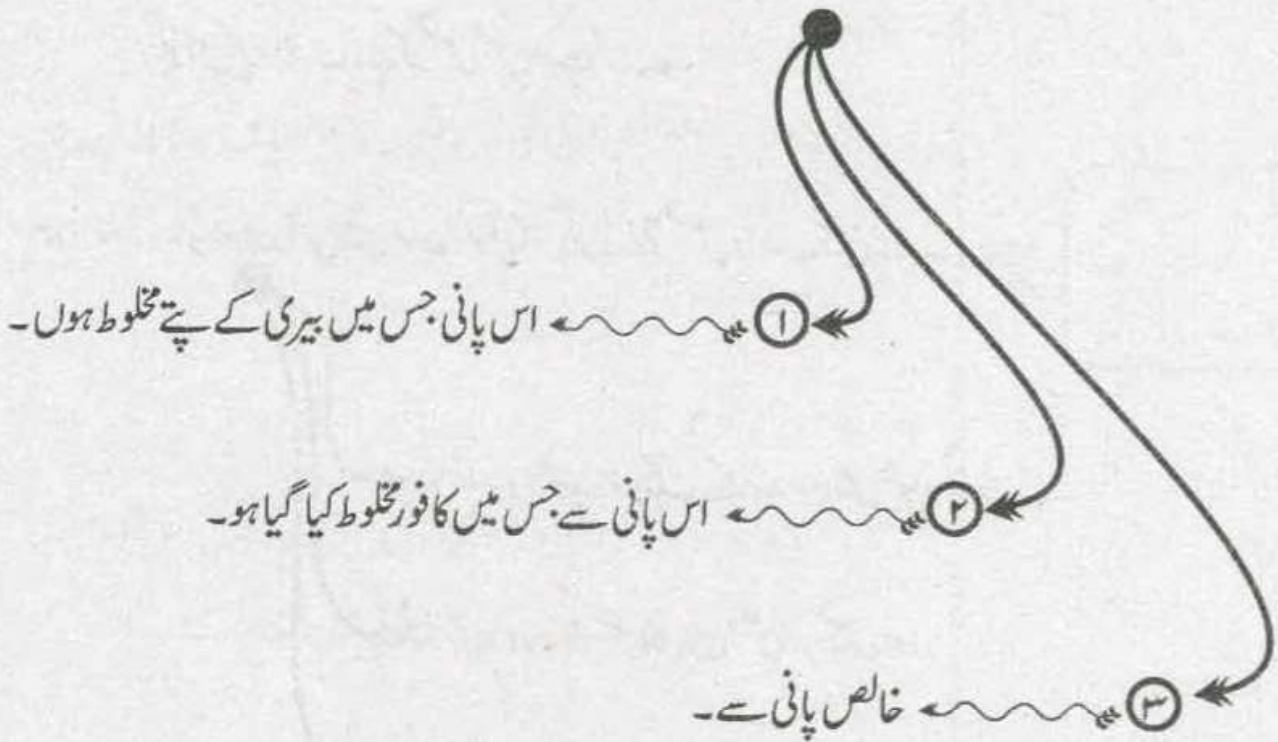 ۱ اس پانی جس میں بیری کے پتے مخلوط ہوں۔
۲ اس پانی سے جس میں کافور مخلوط کیا گیا ہو۔
۳ خالص پانی سے۔